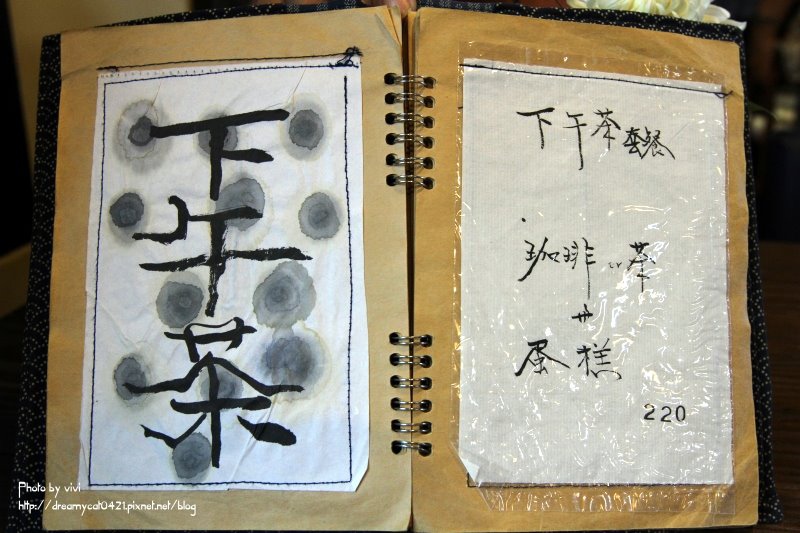 下
午
茶
下午茶套餐
珈琲 or 茶
+
蛋糕
220
Photo by vivi
http://dreamycat0421.pixnet.net/blog